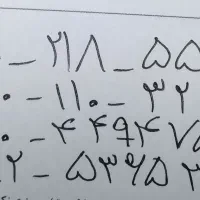 - ۲۱۸ - ۵۵
۰ - ۱۱۰ - ۳۲
۰ - ۴۴۹۴۷۵
۲ - ۵۳۶۵۳